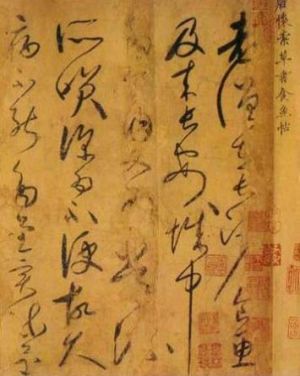 唐懷素草書食魚帖
老僧在長沙食魚
及來長安城中
多食肉又為常流
所笑深為不便故久
病不能多書實疏